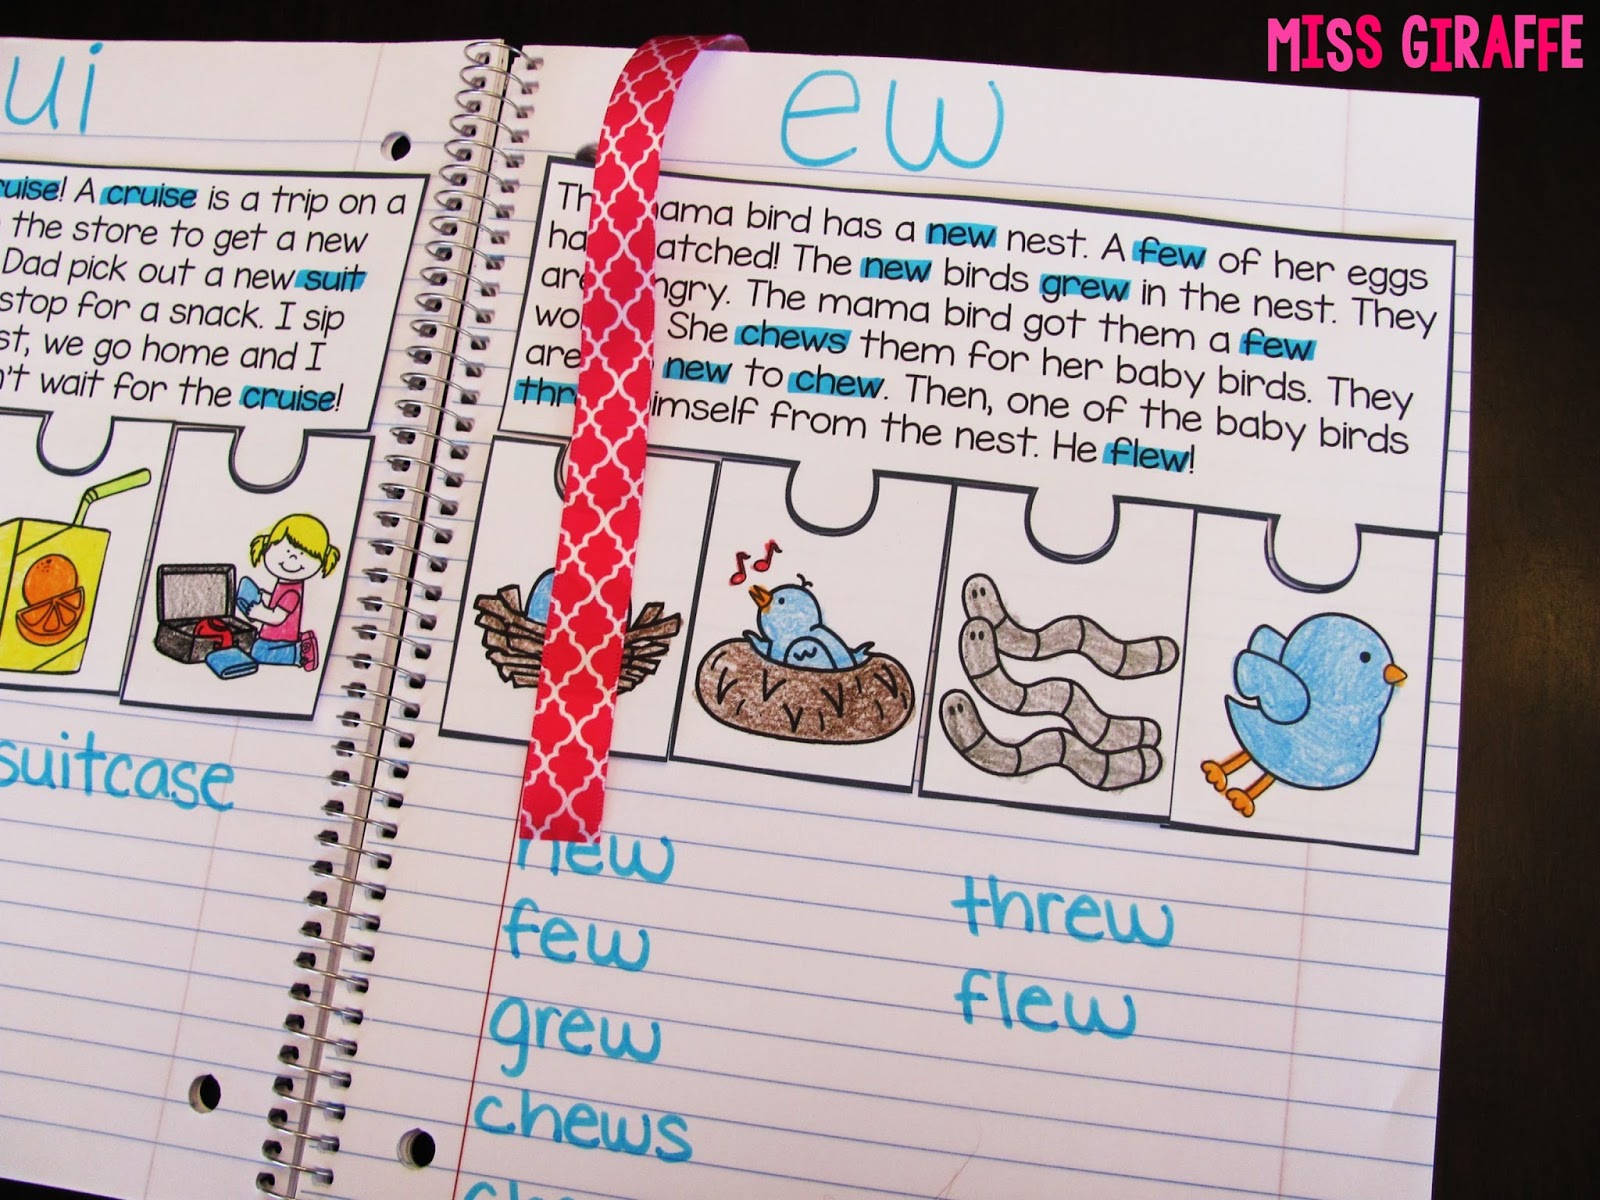 MISS GIRAFFE
ui
cruise! A cruise is a trip on a
the store to get a new
Dad pick out a new suit
stop for a snack. I sip
we go home and I
wait for the cruise!
suitcase
ew
mama bird has a new nest. A few of her eggs
hatched! The new birds grew in the nest. They
are hungry. The mama bird got them a few
She chews them for her baby birds. They
are new to chew. Then, one of the baby birds
threw himself from the nest. He flew!
new
few
grew
chews
threw
flew